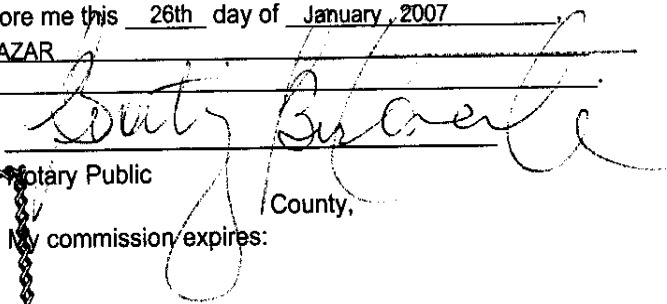 ore me this 26th day of January, 2007,
AZAR
Notary Public
County,
My commission expires: